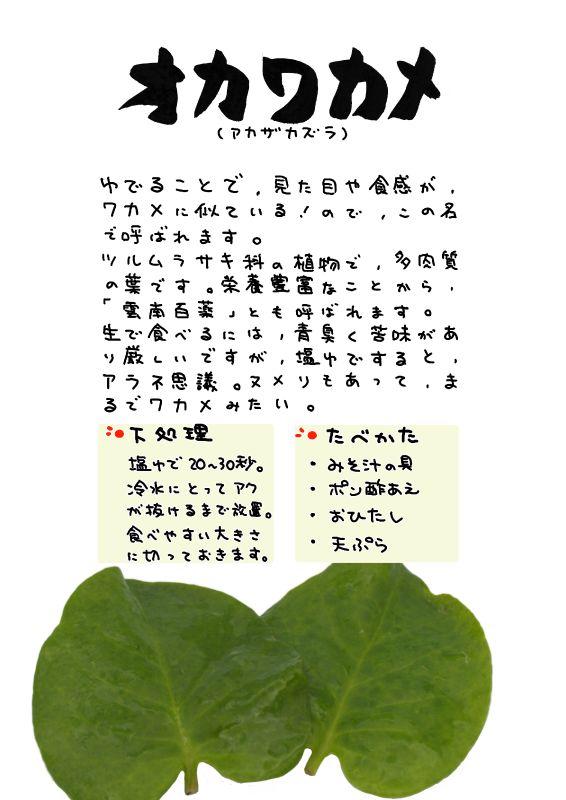 オカワカメ
(アカザカズラ)
ゆでることで，見た目や食感が，
ワカメに似ている！ので，この名
で呼ばれます。
ツルムラサキ科の植物で，多肉質
の葉です。栄養豊富なことから，
「雲南百薬」とも呼ばれます。
生で食べるには，青臭く苦味があ
り厳しいですが，塩ゆですると，
アラネ思議。ヌメリもあって，ま
るでワカメみたい。
下処理
塩ゆで20～30秒。
冷水にとってアク
が抜けるまで放置。
食べやすい大きさ
に切っておきます。
たべかた
・みそ汁の具
・ポン酢あえ
・おひたし
・天ぷら